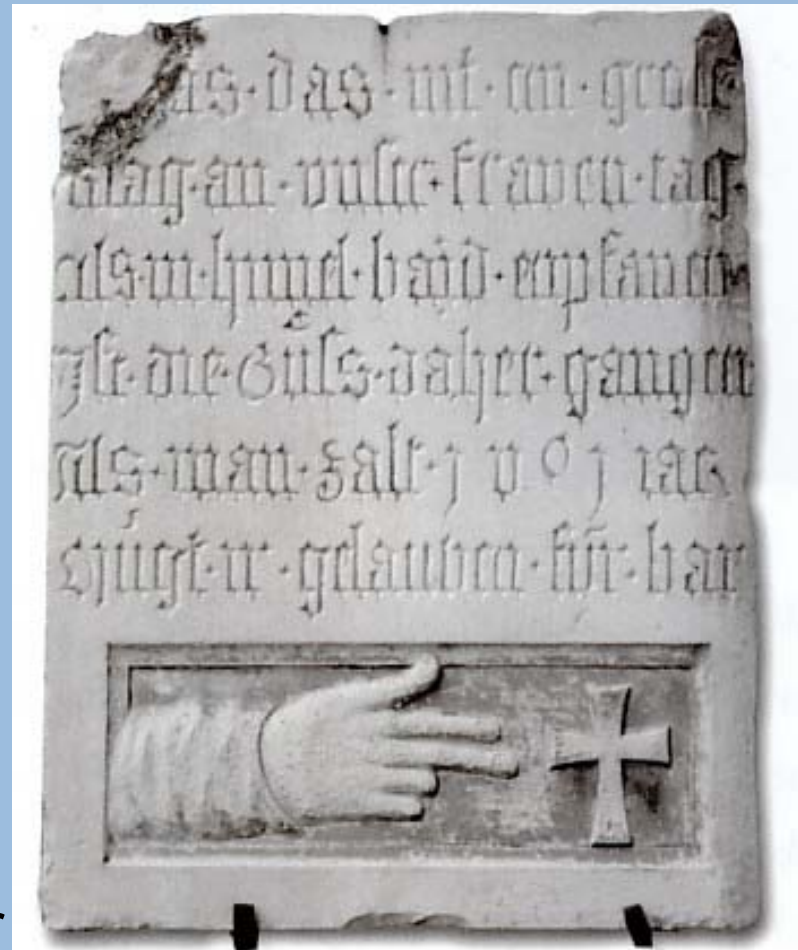 das · das · mit · ein · gross
klag · an · vnser · fraven · tag ·
als · in · himel · bajd · enpfanen
Ist · die · Güss · daher · gangen
Als · man · zalt · j v 0 j iar
Mügt · ir · gelauben · für · bar